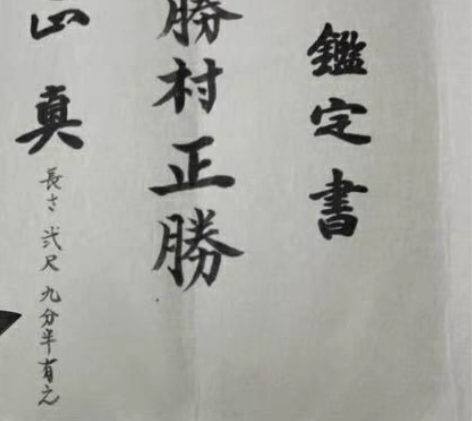 鑑定書
勝村正勝
真
長さ弐尺九分半有之